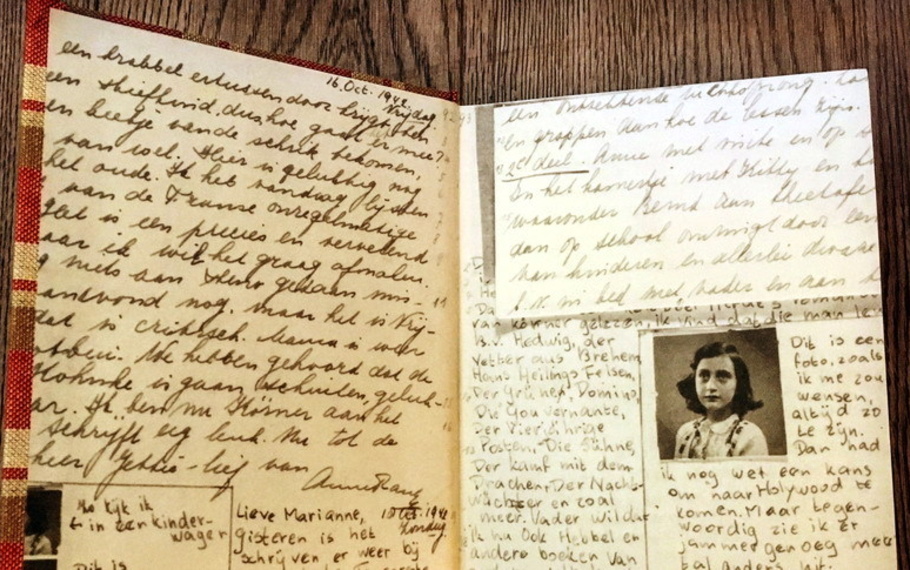 16. Oct. 1942.
Vrijdag.
een krabbel ertussen door krijgt het
een stiefkind, dus hoe gaat er mee?
een beetje van de schrik bekomen,
van wel. Hier is gelukkig nog
het oude. Ik heb vandaag lijsten
van de Franse onregelmatige
Het is een precies en vervelend
maar ik wil het graag afmaken.
niets aan Steno gedaan mis-
vanavond nog, maar het is Vrij-
dat is critisch. Mama is weer
We hebben gehoord dat de
is gaan schuilen, geluk-
Ik ben nu Körner aan het
schrijft erg leuk. Nu tot de
keer Jettie-lief van
Anne Frank
Zo kijk ik
in een kinder-
wagen
Dit is
Lieve Marianne,
gisteren is het
schrijven er weer bij
Oct. 1942
Zondag.
een ontzettende
en grappen aan hoe de lessen zijn.
2e deel. Anne met
In het kamertje met Kitty en
waaronder Bernd aan theetafel
dan op school omringd door een
van kinderen en allerlei dwaze
b.v. in bed met vader en aan
van Körner gelezen, ik vind dat die man
B.v. Hedwig, der
Vetter aus Brehem,
Hans Heilings Felsen,
Der Grüned, Domino,
Die Gouvernante,
Der Vierjährige
Posten, Die Sühne,
Der Kamf mit dem
Drachen, Der Nacht-
wächter en zoal
meer. Vader wil dat
ik nu Ook Hebbel en
andere boeken van
Dit is een
foto, zoals
ik me zou
wensen,
altijd zo
te zijn.
Dan had
ik nog wel een kans
om naar Holywood te
komen. Maar tegen-
woordig zie ik er
jammer genoeg mee
tal anders uit.